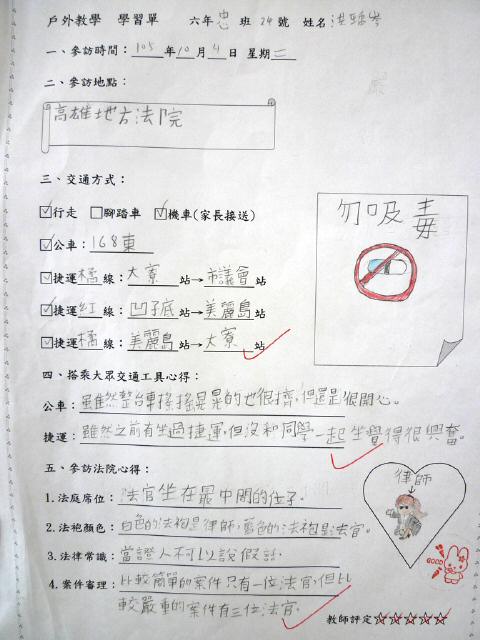 戶外教學 學習單 六年忠班24號 姓名洪
一、參訪時間：105年10月4日 星期二
二、參訪地點：
高雄地方法院
三、交通方式：
☑行走 □腳踏車 ☑機車(家長接送)
☑公車：168東
☑捷運橘線：大寮站→市議會站
☑捷運紅線：凹子底站→美麗島站
☑捷運橘線：美麗島站→大寮站
勿吸毒
四、搭乘大眾交通工具心得：
公車：雖然整台車搖搖晃晃的也很擠，但還是很開心。
捷運：雖然之前有坐過捷運，但沒和同學一起坐覺得很興奮。
五、參訪法院心得：
1.法庭席位：法官坐在最中間的位子.
2.法袍顏色：白色的法袍是律師，藍色的法袍是法官。
3.法律常識：當證人不可以說假話.
4.案件審理：比較簡單的案件只有一位法官，但比
較嚴重的案件有三位法官.
律師
GOOD
教師評定☆☆☆☆☆